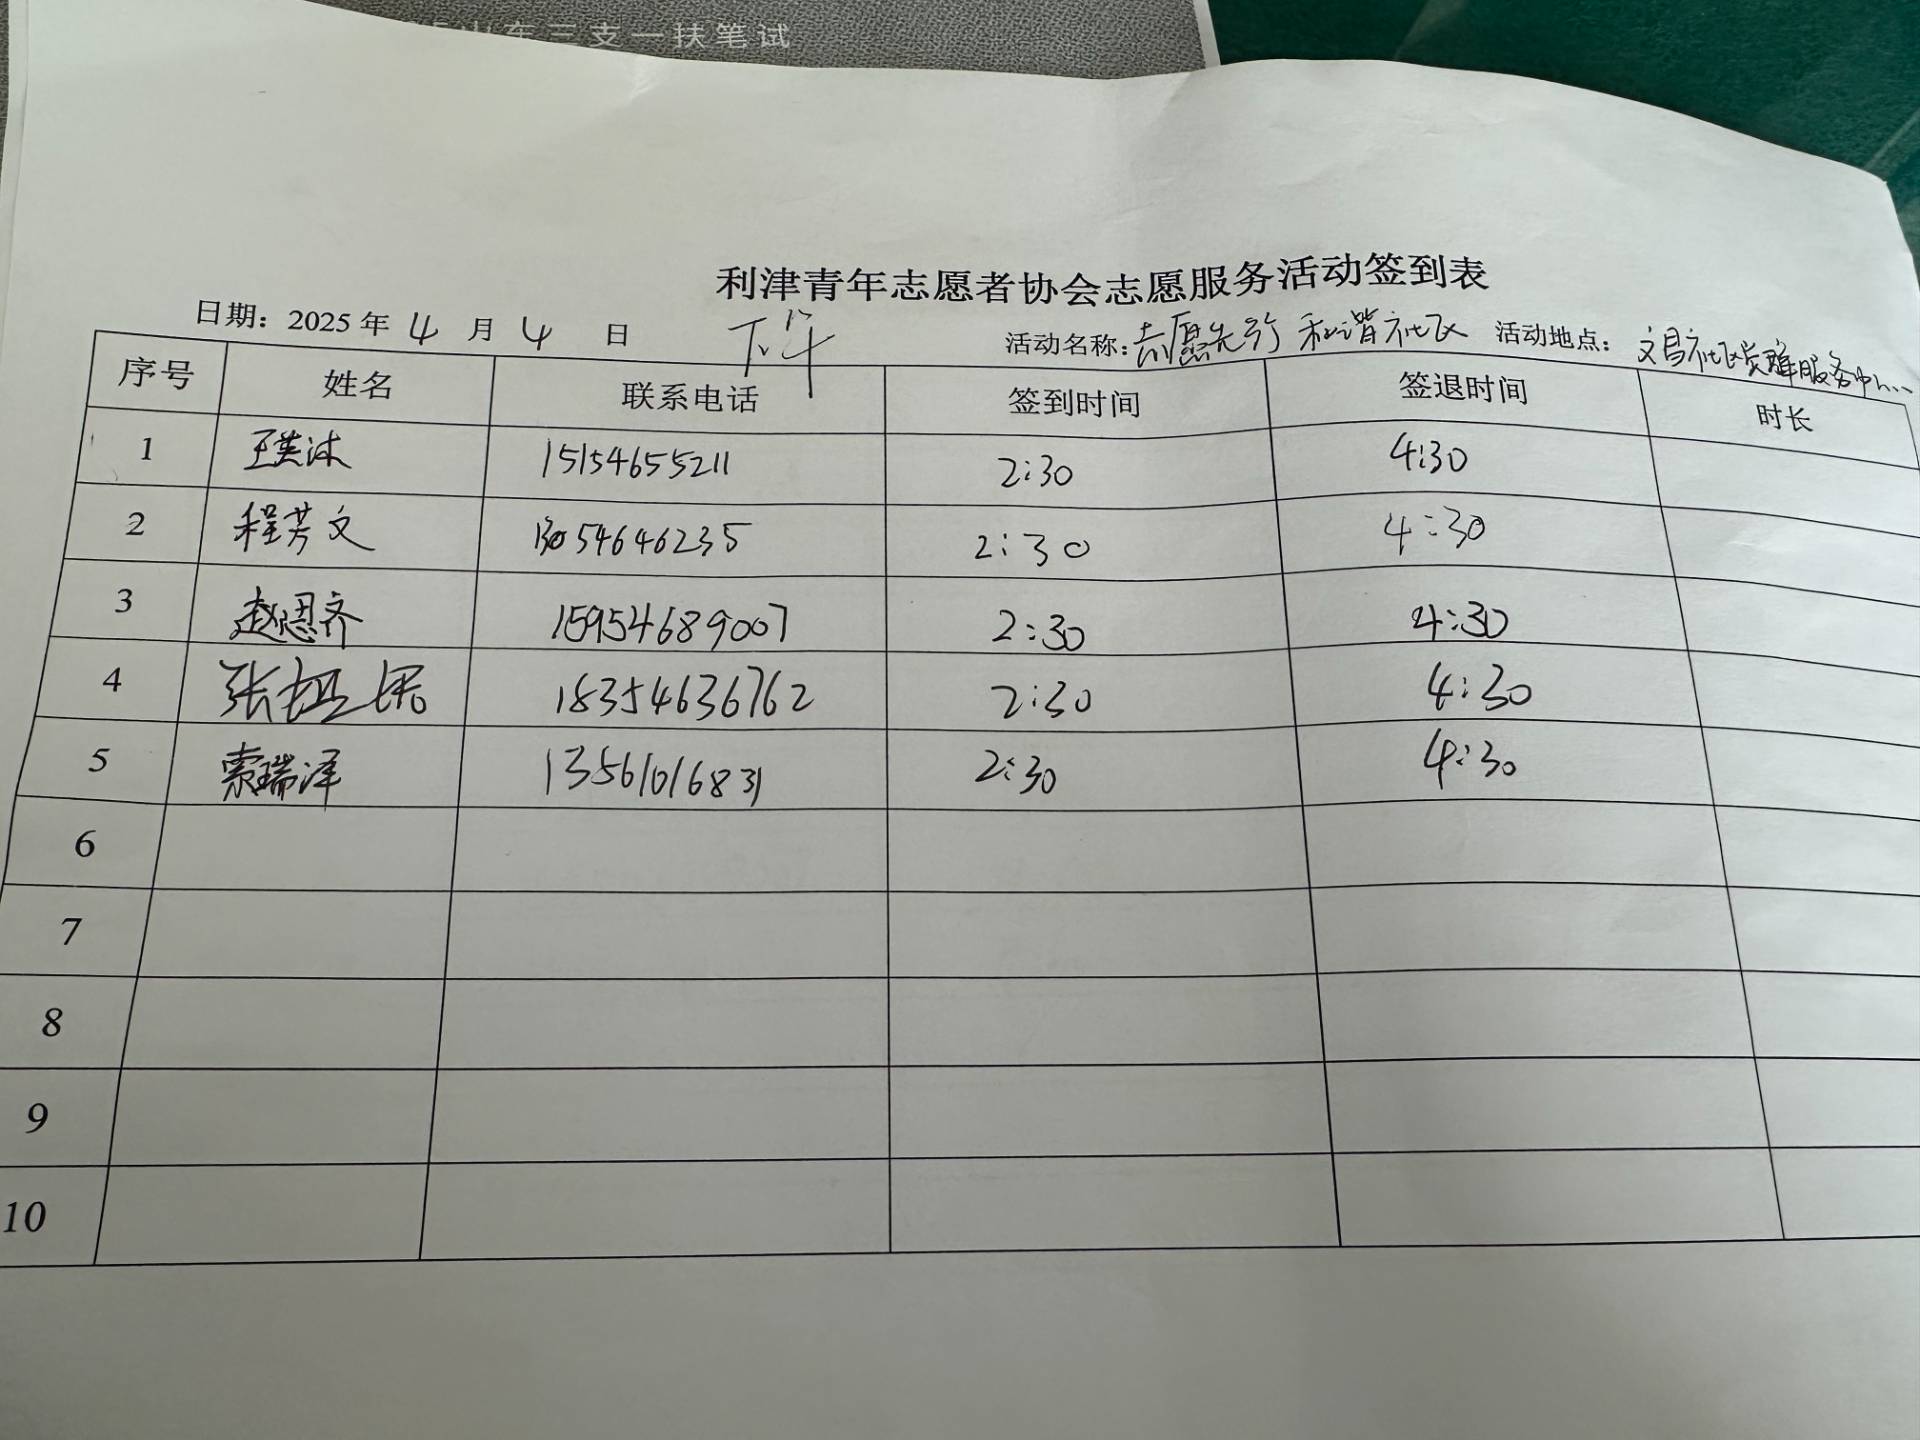 山东三支一扶笔试
利津青年志愿者协会志愿服务活动签到表
日期：2025 年 4 月 4 日 下午 活动名称：志愿先行 和谐社区 活动地点：文昌社区党群服务中心
序号 姓名 联系电话 签到时间 签退时间 时长
1 15154655211 2:30 4:30
2 程芳文 13054646235 2:30 4:30
3 赵恩齐 15954689007 2:30 4:30
4 张 18354636762 2:30 4:30
5 索瑞泽 13561016831 2:30 4:30
6
7
8
9
10